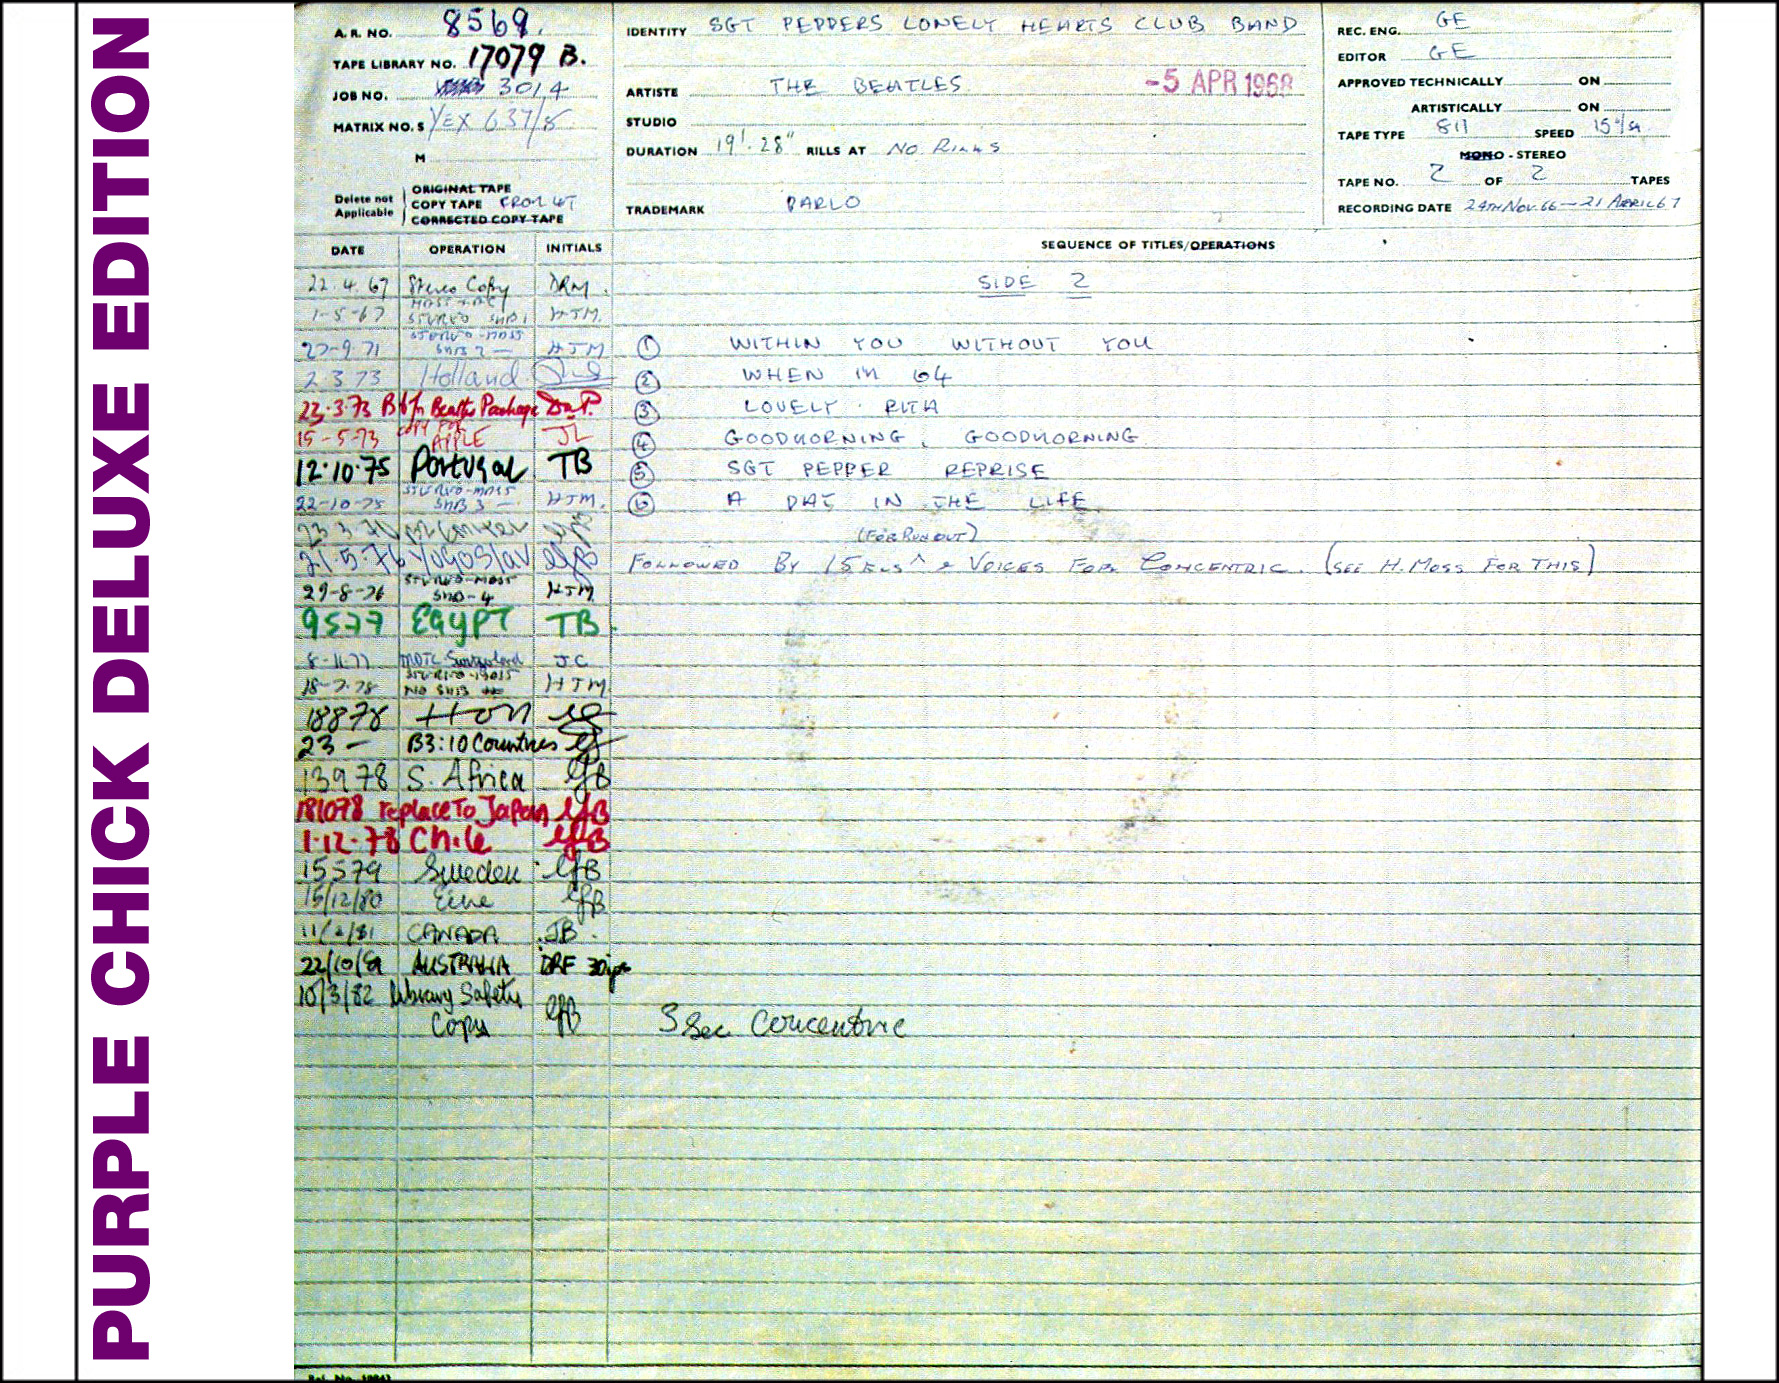 PURPLE CHICK DELUXE EDITION
A. R. NO. 8569.
TAPE LIBRARY NO. 17079 B.
JOB NO. 3014
MATRIX NO. S YEX 637/8
M
Delete not Applicable
ORIGINAL TAPE
COPY TAPE FROM 4T
CORRECTED COPY TAPE
IDENTITY SGT PEPPERS LONELY HEARTS CLUB BAND
ARTISTE THE BEATLES -5 APR 1968
STUDIO
DURATION 19'. 28" RILLS AT NO RILLS
TRADEMARK PARLO
REC. ENG. GE
EDITOR GE
APPROVED TECHNICALLY ON
ARTISTICALLY ON
TAPE TYPE 811 SPEED 15"/
MONO - STEREO
TAPE NO. 2 OF 2 TAPES
RECORDING DATE 24TH NOV. 66 - 21 APRIL 67
DATE OPERATION INITIALS SEQUENCE OF TITLES/OPERATIONS
22.4.67 Stereo Copy DRM. SIDE 2
1-5-67 STEREO HTM.
27-9-71 STEREO-MOSS SHB 2 - HTM ① WITHIN YOU WITHOUT YOU
2.3.73 Holland ② WHEN IM 64
22.3.73 Beatles Package D.P. ③ LOVELY RITA
15-5-73 COPY FOR APPLE JL ④ GOODMORNING, GOODMORNING
12.10.75 Portugal TB ⑤ SGT PEPPER REPRISE
22-10-75 STEREO-MOSS SHB 3 - HTM. ⑥ A DAY IN THE LIFE
(FOR RUN OUT)
21.5.76 Yugoslav efB FOLLOWED BY 15 KC/S ^ & VOICES FOR CONCENTRIC. (SEE H. MOSS FOR THIS)
27-8-76 STEREO-MOSS SHB-4 HTM
9577 EGYPT TB.
8-11-77 Switzerland JC
18-7-78 STEREO-MOSS NO SHB HTM
18878 HON
23 - B3: 10 Countries
13978 S. Africa efB
181078 replace To Japan efB
1.12.78 Chile efB
15579 Sweden efB
15/12/80 Eire efB
11/2/81 CANADA JB.
22/10/81 AUSTRALIA DRF 30ips
10/3/82 Library Safety Copy efB 3 Sec Concentric